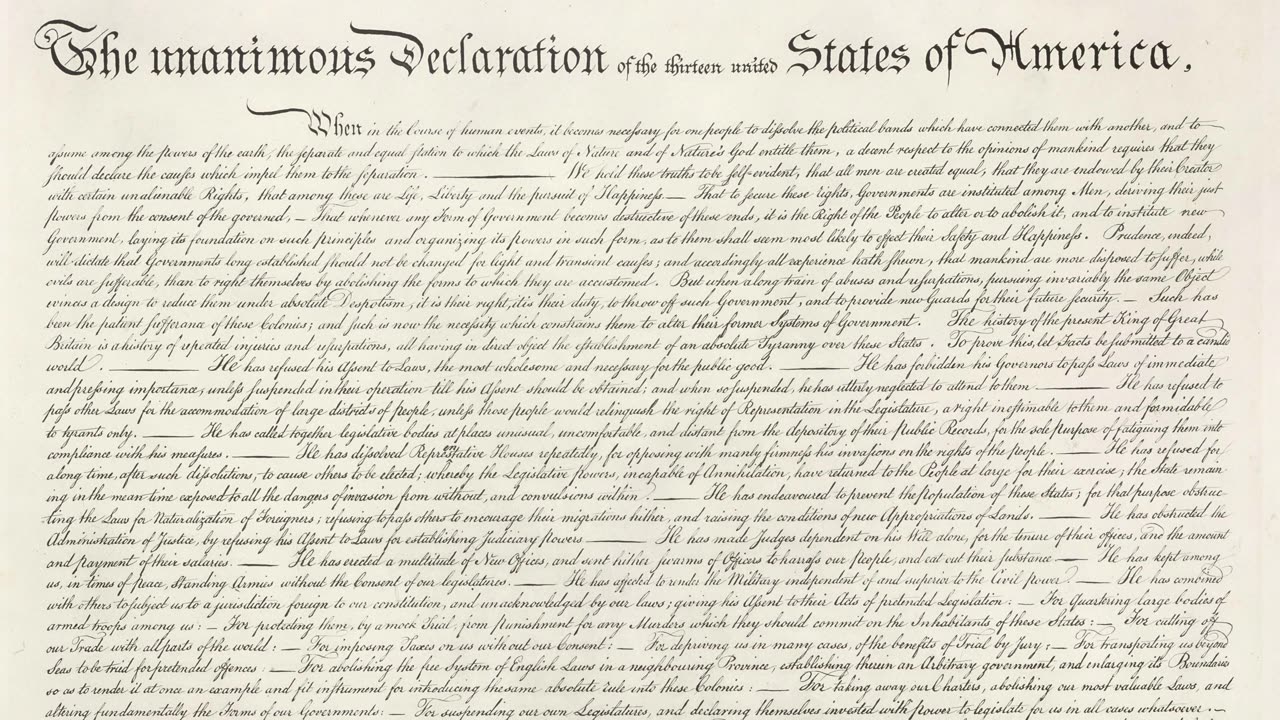 The unanimous Declaration of the thirteen united States of America,
When in the Course of human events, it becomes necessary for one people to dissolve the political bands which have connected them with another, and to
assume among the powers of the earth, the separate and equal station to which the Laws of Nature and of Nature's God entitle them, a decent respect to the opinions of mankind requires that they
should declare the causes which impel them to the separation. ——— We hold these truths to be self-evident, that all men are created equal, that they are endowed by their Creator
with certain unalienable Rights, that among these are Life, Liberty and the pursuit of Happiness.— That to secure these rights, Governments are instituted among Men, deriving their just
powers from the consent of the governed, — That whenever any Form of Government becomes destructive of these ends, it is the Right of the People to alter or to abolish it, and to institute new
Government, laying its foundation on such principles and organizing its powers in such form, as to them shall seem most likely to effect their Safety and Happiness. Prudence, indeed,
will dictate that Governments long established should not be changed for light and transient causes; and accordingly all experience hath shewn, that mankind are more disposed to suffer, while
evils are sufferable, than to right themselves by abolishing the forms to which they are accustomed. But when a long train of abuses and usurpations, pursuing invariably the same Object
evinces a design to reduce them under absolute Despotism, it is their right, it is their duty, to throw off such Government, and to provide new Guards for their future security. — Such has
been the patient sufferance of these Colonies; and such is now the necessity which constrains them to alter their former Systems of Government. The history of the present King of Great
Britain is a history of repeated injuries and usurpations, all having in direct object the establishment of an absolute Tyranny over these States. To prove this, let Facts be submitted to a candid
world. ——— He has refused his Assent to Laws, the most wholesome and necessary for the public good. ——— He has forbidden his Governors to pass Laws of immediate
and pressing importance, unless suspended in their operation till his Assent should be obtained; and when so suspended, he has utterly neglected to attend to them. ——— He has refused to
pass other Laws for the accommodation of large districts of people, unless those people would relinquish the right of Representation in the Legislature, a right inestimable to them and formidable
to tyrants only. ——— He has called together legislative bodies at places unusual, uncomfortable, and distant from the depository of their Public Records, for the sole purpose of fatiguing them into
compliance with his measures. ——— He has dissolved Representative Houses repeatedly, for opposing with manly firmness his invasions on the rights of the people. ——— He has refused for
a long time, after such dissolutions, to cause others to be elected; whereby the Legislative powers, incapable of Annihilation, have returned to the People at large for their exercise; the State remain
ing in the mean time exposed to all the dangers of invasion from without, and convulsions within. ——— He has endeavoured to prevent the population of these States; for that purpose obstruc-
ting the Laws for Naturalization of Foreigners; refusing to pass others to encourage their migrations hither, and raising the conditions of new Appropriations of Lands. ——— He has obstructed the
Administration of Justice, by refusing his Assent to Laws for establishing Judiciary powers ——— He has made Judges dependent on his Will alone, for the tenure of their offices, and the amount
and payment of their salaries. ——— He has erected a multitude of New Offices, and sent hither swarms of Officers to harrass our people, and eat out their substance. ——— He has kept among
us, in times of peace, Standing Armies without the Consent of our legislatures. ——— He has affected to render the Military independent of and superior to the Civil power. ——— He has combined
with others to subject us to a jurisdiction foreign to our constitution, and unacknowledged by our laws; giving his Assent to their Acts of pretended Legislation: — For Quartering large bodies of
armed troops among us: — For protecting them, by a mock Trial, from punishment for any Murders which they should commit on the Inhabitants of these States: — For cutting off
our Trade with all parts of the world: — For imposing Taxes on us without our Consent: — For depriving us in many cases, of the benefits of Trial by Jury: — For transporting us beyond
Seas to be tried for pretended offences — For abolishing the free System of English Laws in a neighbouring Province, establishing therein an Arbitrary government, and enlarging its Boundaries
so as to render it at once an example and fit instrument for introducing the same absolute rule into these Colonies: — For taking away our Charters, abolishing our most valuable Laws, and
altering fundamentally the Forms of our Governments: — For suspending our own Legislatures, and declaring themselves invested with power to legislate for us in all cases whatsoever. —